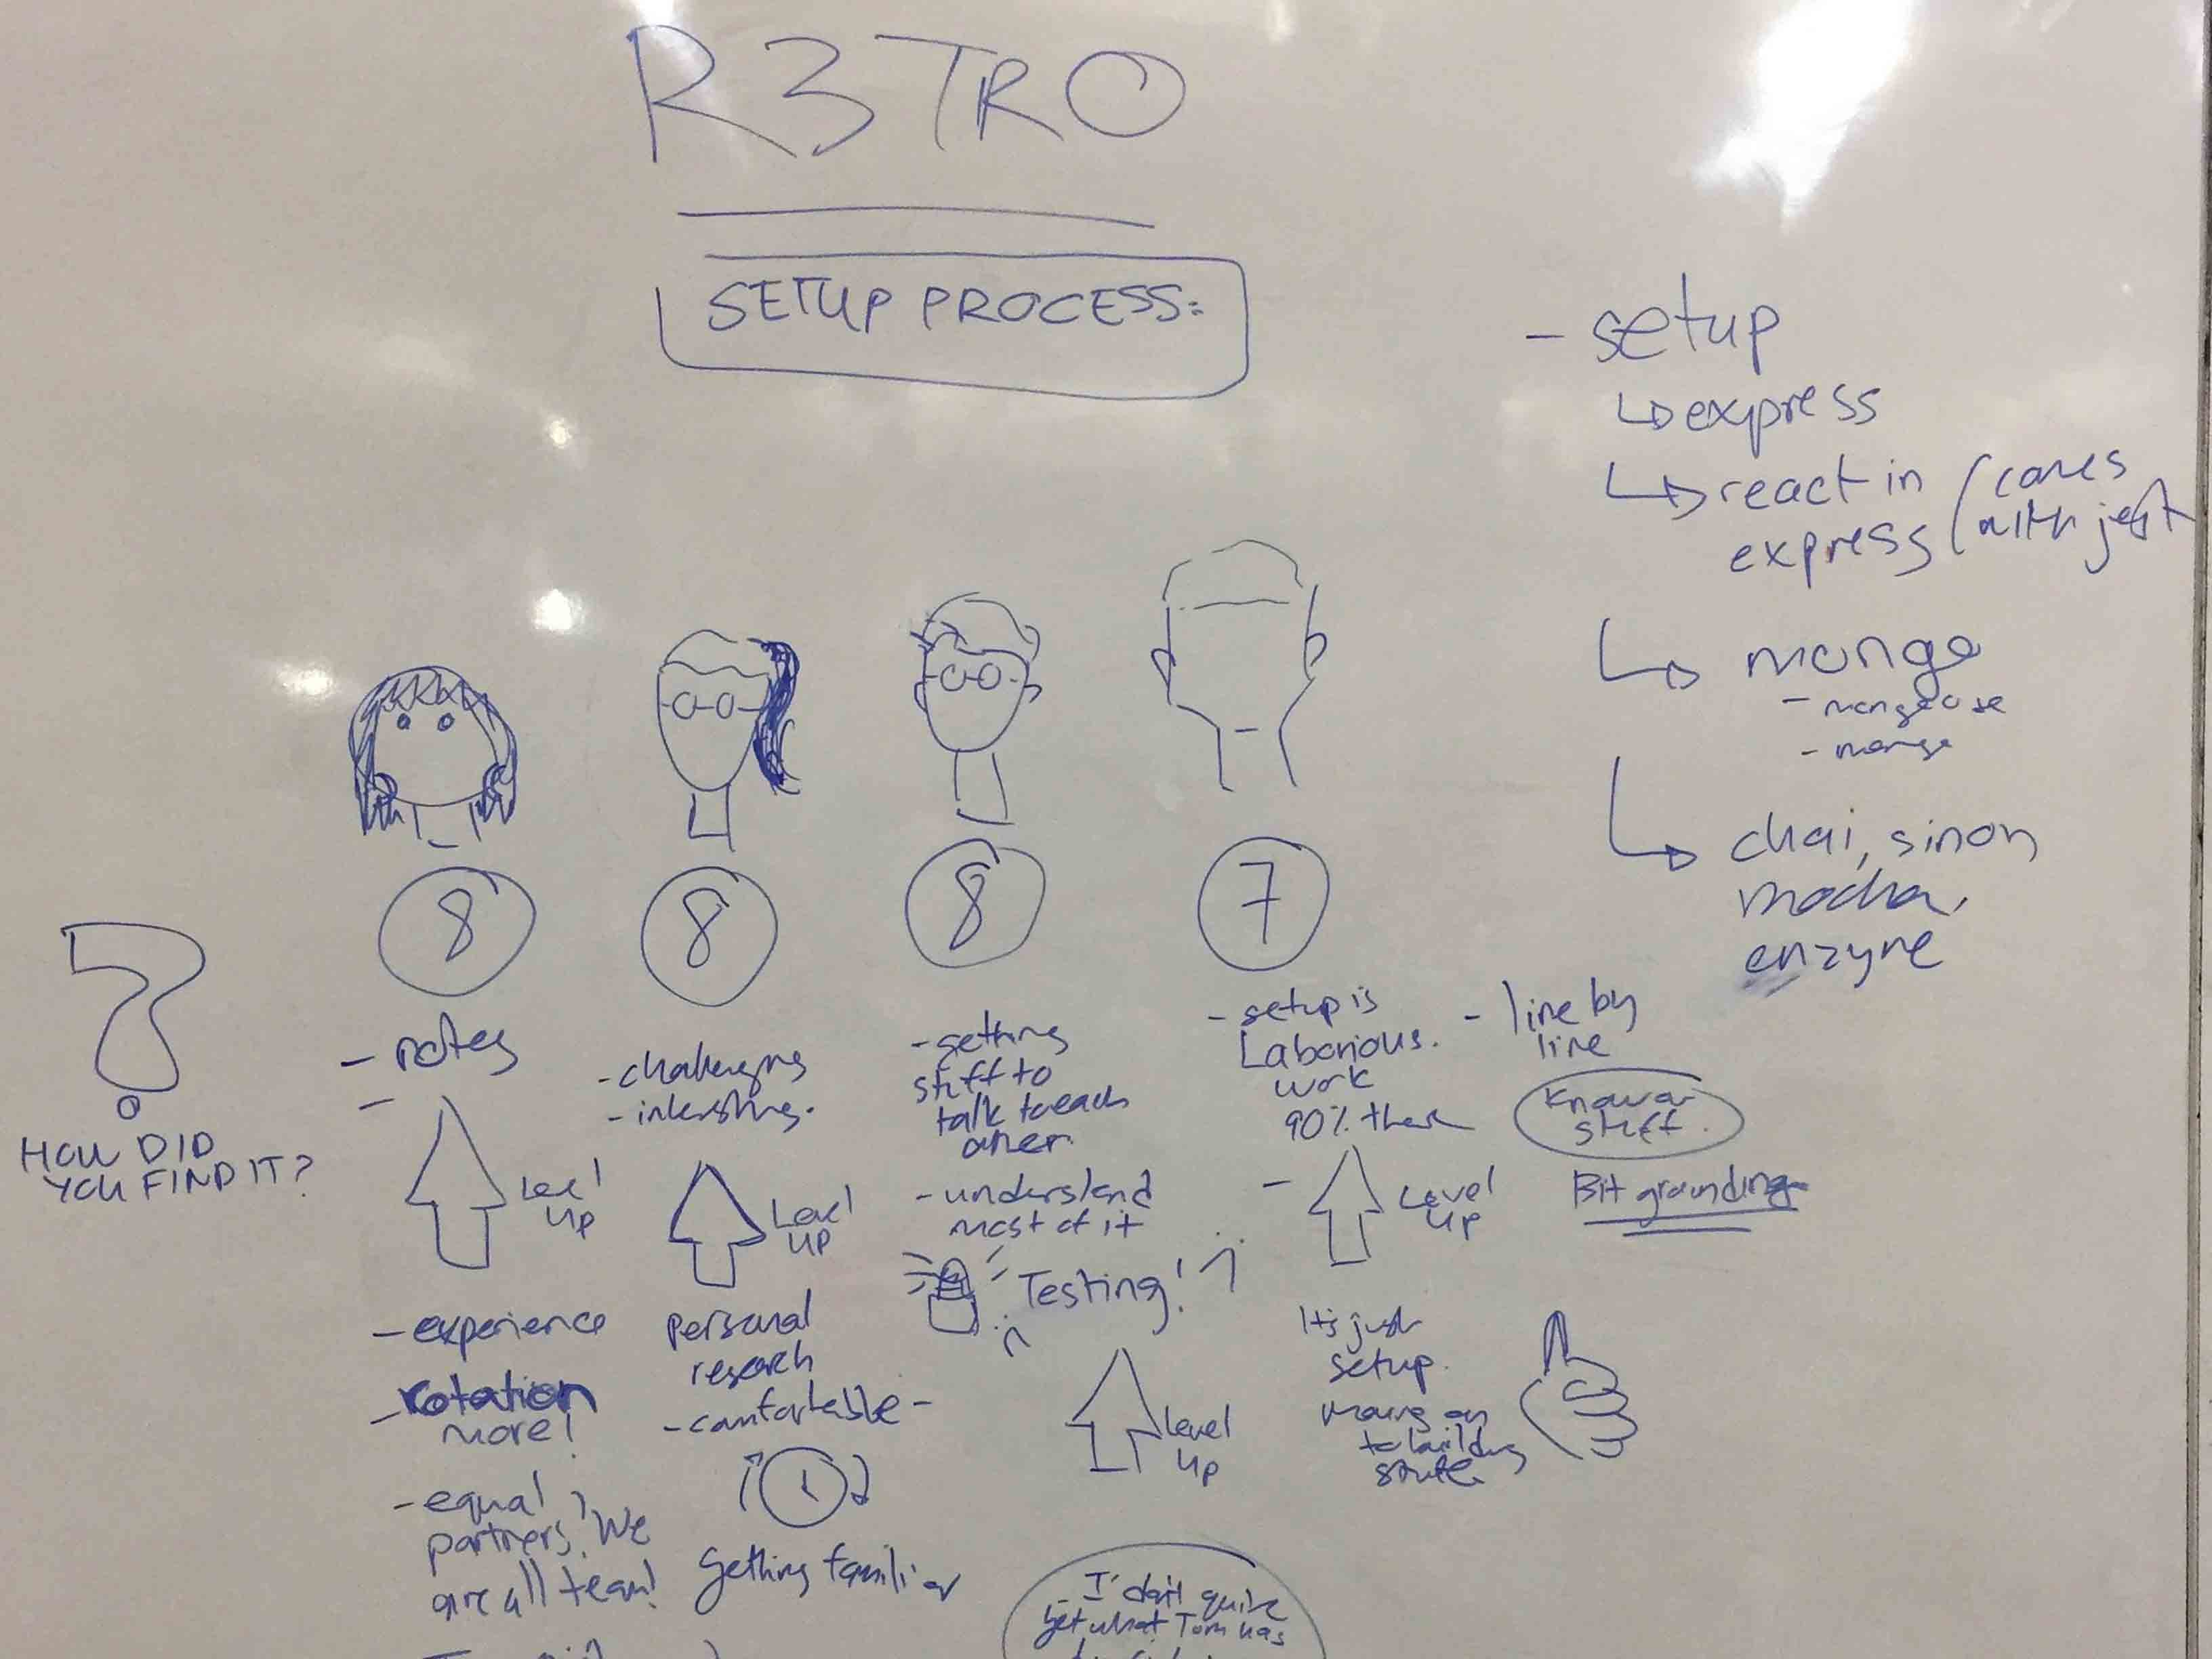 R3TRO
SETUP PROCESS:
- setup
express
react in
express
(comes
with jest
mongo
- mongoose
- mongo
chai, sinon
mocha,
enzyme
8
8
8
7
?
HOW DID
YOU FIND IT?
- notes
-
Level
Up
- experience
- rotation
more!
- equal
partners! We
are all team!
- challenging
- interesting.
Level
UP
personal
research
- comfortable -
Getting familiar
- getting
stuff to
talk to each
other
- understand
most of it
Testing!
Level
Up
- I don't quite
get what Tom has
- setup is
Laborious.
work
90% there
- Level
UP
It's just
setup.
moving on
to building
stuff
- line by
line
Know a
stuff.
Bit grounding